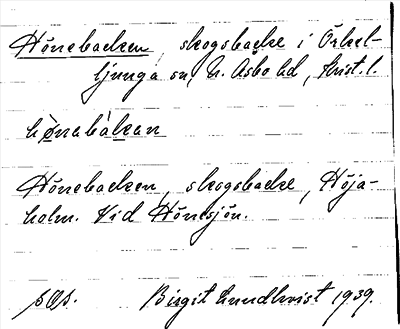 Hönebacken, skogsbacke i Örkel-
ljunga sn, N. Åsbo hd, Krist. l.
hø̀nabàkan
Hönebacken, skogsbacke, Höja-
holm. Vid Hönesjön.
Birgit Lundkvist 1939.